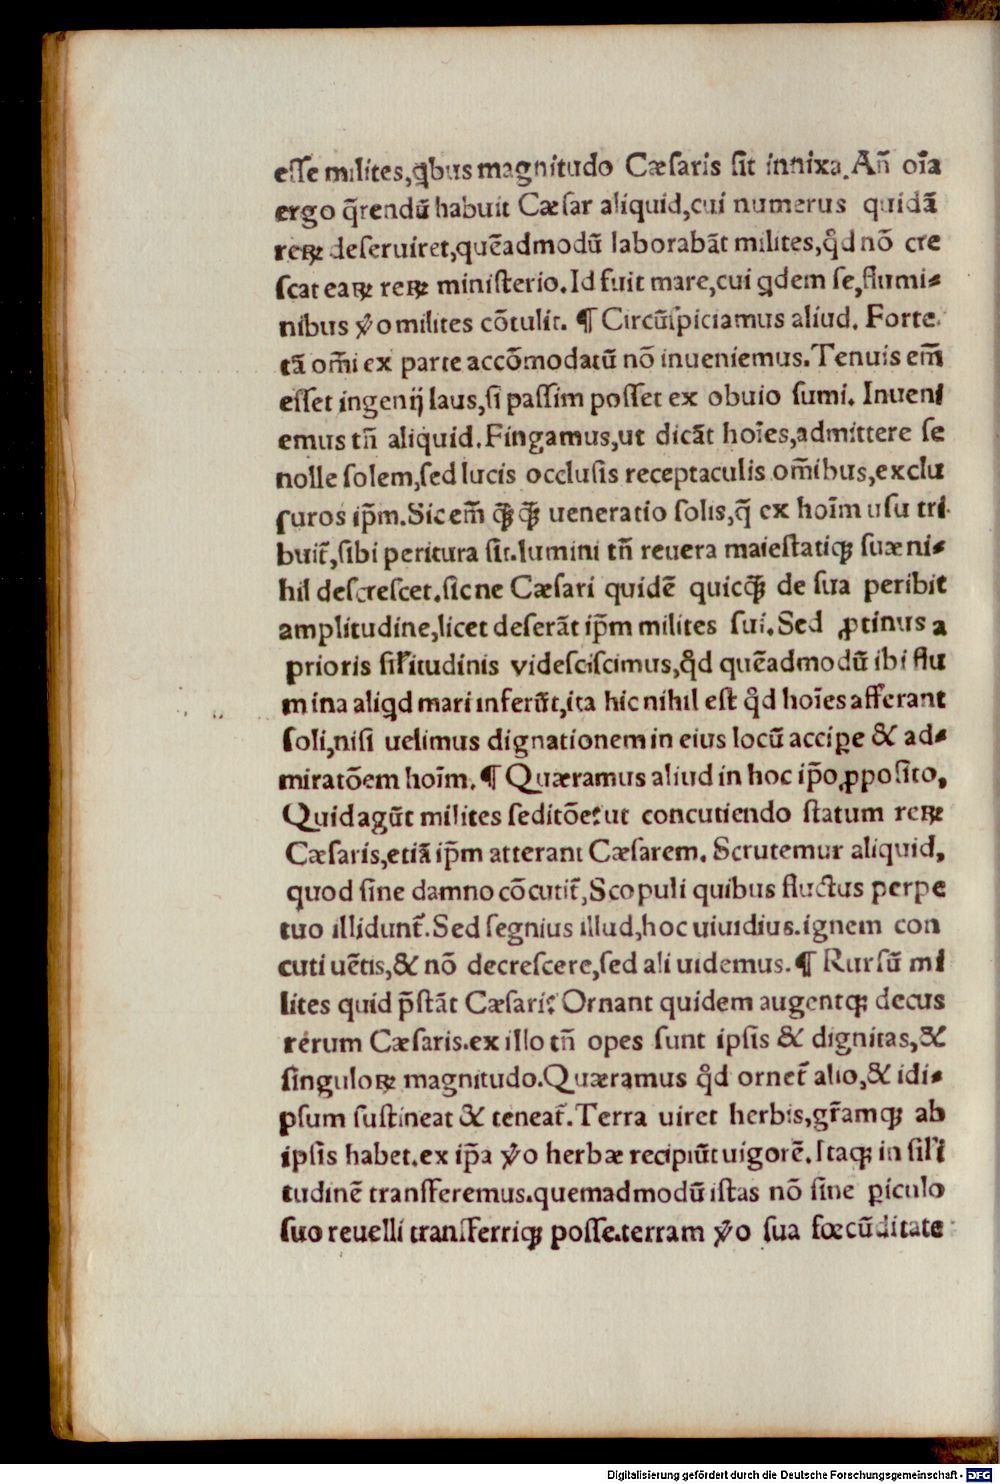 eſſe milites,q̈bus magnitudo Cæſaris ſit innixa.An̄ oīa
ergo q̄rendū habuit Cæſar aliquid,cui numerus quidā
reꝝ deſeruiret,quēadmodū laborabāt milites,qd̓ nō cre
ſcat eaꝝ reꝝ miniſterio.Id fuit mare,cui qdem ſe,flumi⸗
nibus v̓o milites cōtulit. ¶ Circūſpiciamus aliud. Forte
tā om̄i ex parte accōmodatū nō inueniemus.Tenuis em̄
eſſet ingenij laus,ſi paſſim poſſet ex obuio ſumi. Inueni
emus tn̄ aliquid.Fingamus,ut dicāt hoīes,admittere ſe
nolle ſolem,ſed lucis occluſis receptaculis om̄ibus,exclu
ſuros ip̄m.Sic em̄ qꝙ̄ qꝙ̄ ueneratio ſolis,q̄ ex hoīm uſu tri
buit̄,ſibi peritura ſit.lumini tn̄ reuera maieſtatiqꝫ ſuæ ni⸗
hil deſcreſcet.ſic ne Cæſari quidē quicꝙ̄ de ſua peribit
amplitudine,licet deſerāt ip̄m milites ſui.Sed ꝓtinus a
prioris ſil̄itudinis vi deſciſcimus,qd̓ quēadmodū ibi flu
mina aliqd mari inferūt,ita hic nihil eſt qd̓ hoīes afferant
ſoli,niſi uelimus dignationem in eius locū accipe & ad⸗
miratōem hoīm.¶ Quæramus aliud in hoc ip̄o ꝓpoſito,
Quid agūt milites ſeditōe? ut concutiendo ſtatum reꝝ
Cæſaris,etiā ip̄m atterant Cæſarem. Scrutemur aliquid,
quod ſine damno cōcutit̄,Scopuli quibus fluctus perpe
tuo illidunt̄.Sed ſegnius illud,hoc uiuidius.ignem con
cuti uētis,& nō decreſcere,ſed ali uidemus.¶ Rurſū mi
lites quid p̄ſtāt Cæſari? Ornant quidem augentqꝫ decus
rerum Cæſaris.ex illo tn̄ opes ſunt ipſis & dignitas,&
ſinguloꝝ magnitudo.Quæramus qd̓ ornet̄ alio,& idi⸗
pſum ſuſtineat & teneat̄.Terra uiret herbis,gr̄amqꝫ ab
ipſis habet.ex ip̄a v̓o herbæ recipiūt uigorē.Itaqꝫ in ſil̄i
tudinē tranſferemus.quemadmodū iſtas nō ſine ꝑiculo
ſuo reuelli tranſferriqꝫ poſſe.terram v̓o ſua fœcūditate
Digitalisierung gefördert durch die Deutsche Forschungsgemeinschaft - DFG